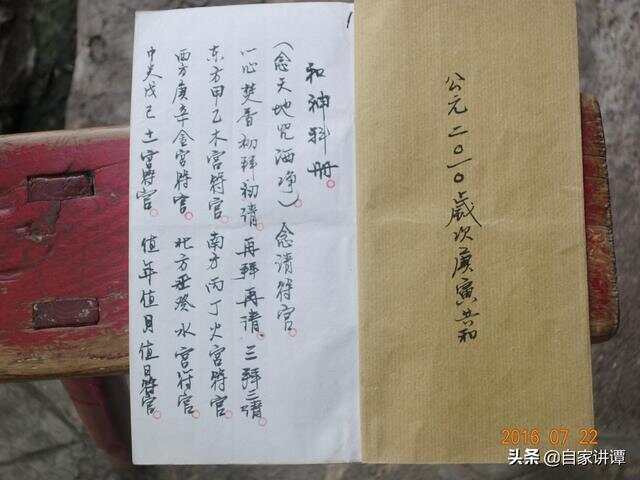 公元二〇一〇歲次庚寅共和
1
和神科册。
(念天地咒洒净) 念请符官
一心焚香初拜初请。再拜再请。三拜三请。
东方甲乙木宫符官。南方丙丁火宫符官。
西方庚辛金宫符官。北方壬癸水宫符官。
中央戊己土宫符官。值年值月值日符官。
2016 07 22
头条 @自家讲谭